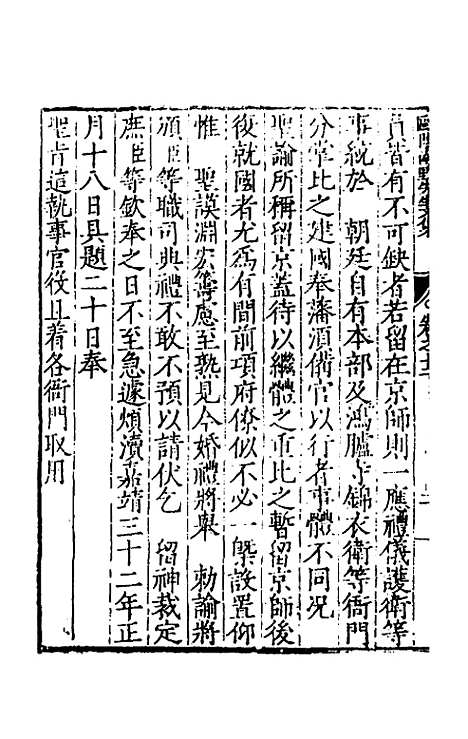 皆有不可缺者若留在京師則一應禮儀護衛等
事統於　朝廷自有本部及鴻臚寺錦衣衛等衙門
分掌比之建國奉藩須備官以行者事體不同況
聖諭所稱留京蓋待以繼體之重比之暫留京師後
復就國者尤爲有間前項府僚似不必一槩設置仰
惟　聖謨淵宏籌慮至熟見今婚禮將舉　勑諭將
頒臣等職司典禮不敢不預以請伏乞　留神裁定
庶臣等欽奉之日不至急遽煩瀆嘉靖三十二年正
月十八日具題二十日奉
聖旨這執事官役且着各衙門取用